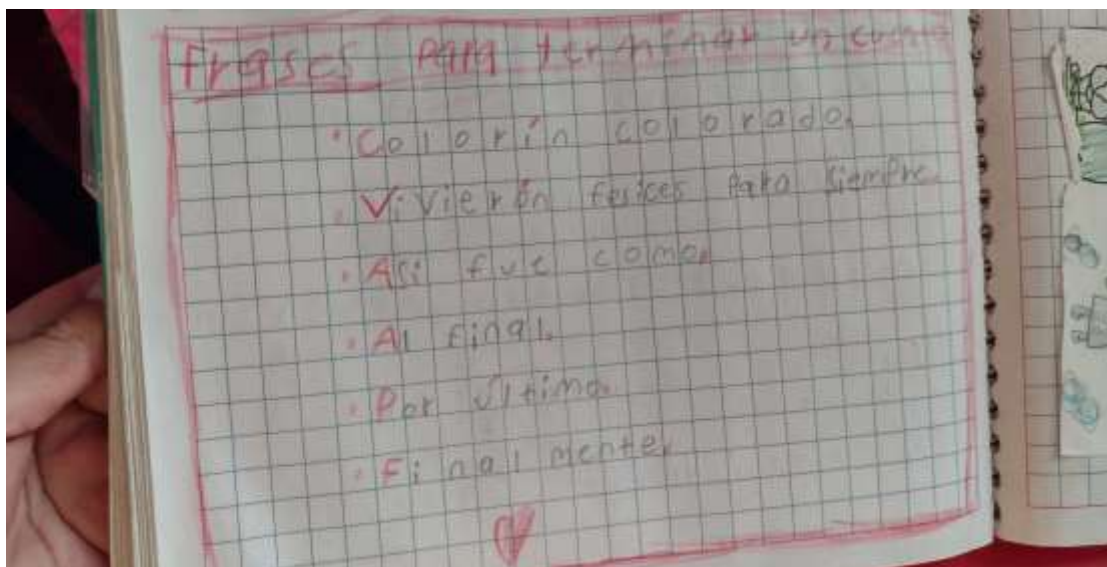 Frases Para terminar un cuento
• Colorín colorado.
• Vivierón felices Para Siempre.
• Asi fue como.
• Al final.
• Por último.
• Finalmente.